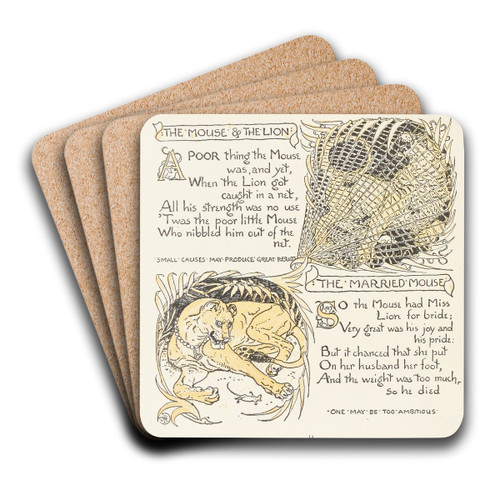 THE · MOUSE · & · THE · LION ·
A POOR thing the Mouse
was, and yet,
When the Lion got
caught in a net,
All his strength was no use
'Twas the poor little Mouse
Who nibbled him out of the
net.
SMALL · CAUSES · MAY · PRODUCE · GREAT · RESULTS
· THE · MARRIED · MOUSE ·
SO the Mouse had Miss
Lion for bride;
Very great was his joy and
his pride:
But it chanced that she put
On her husband her foot,
And the weight was too much,
so he died
· ONE · MAY · BE · TOO · AMBITIOUS ·